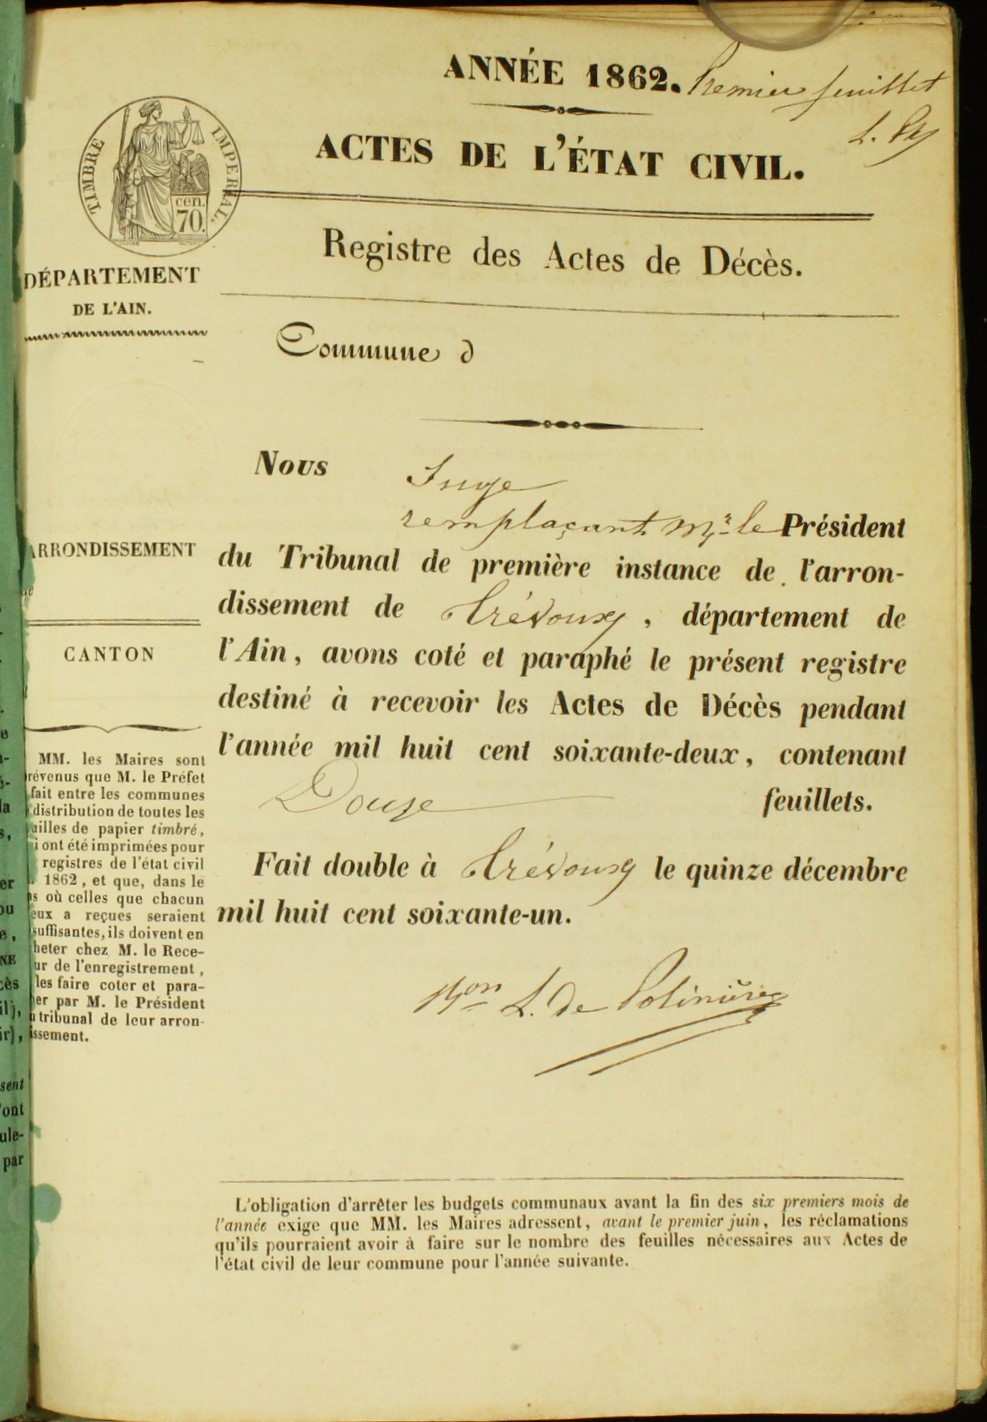 ANNÉE 1862. Premier feuillet
L. P
ACTES DE L'ÉTAT CIVIL.
TIMBRE IMPERIAL.
cen.
70.
Registre des Actes de Décès.
DÉPARTEMENT
DE L'AIN.
Commune d
Nous Juge
remplaçant Mr. le Président
du Tribunal de première instance de l'arron-
dissement de Trévoux, département de
l'Ain, avons coté et paraphé le présent registre
destiné à recevoir les Actes de Décès pendant
l'année mil huit cent soixante-deux, contenant
Douze feuillets.
Fait double à Trévoux le quinze décembre
mil huit cent soixante-un.
L. de Polinière
ARRONDISSEMENT
CANTON
MM. les Maires sont
révenus que M. le Préfet
fait entre les communes
distribution de toutes les
uilles de papier timbré,
i ont été imprimées pour
registres de l'état civil
1862, et que, dans le
s où celles que chacun
eux a reçues seraient
suffisantes, ils doivent en
heter chez M. le Rece-
ur de l'enregistrement,
les faire coter et para-
er par M. le Président
tribunal de leur arron-
issement.
L'obligation d'arrêter les budgets communaux avant la fin des six premiers mois de
l'année exige que MM. les Maires adressent, avant le premier juin, les réclamations
qu'ils pourraient avoir à faire sur le nombre des feuilles nécessaires aux Actes de
l'état civil de leur commune pour l'année suivante.